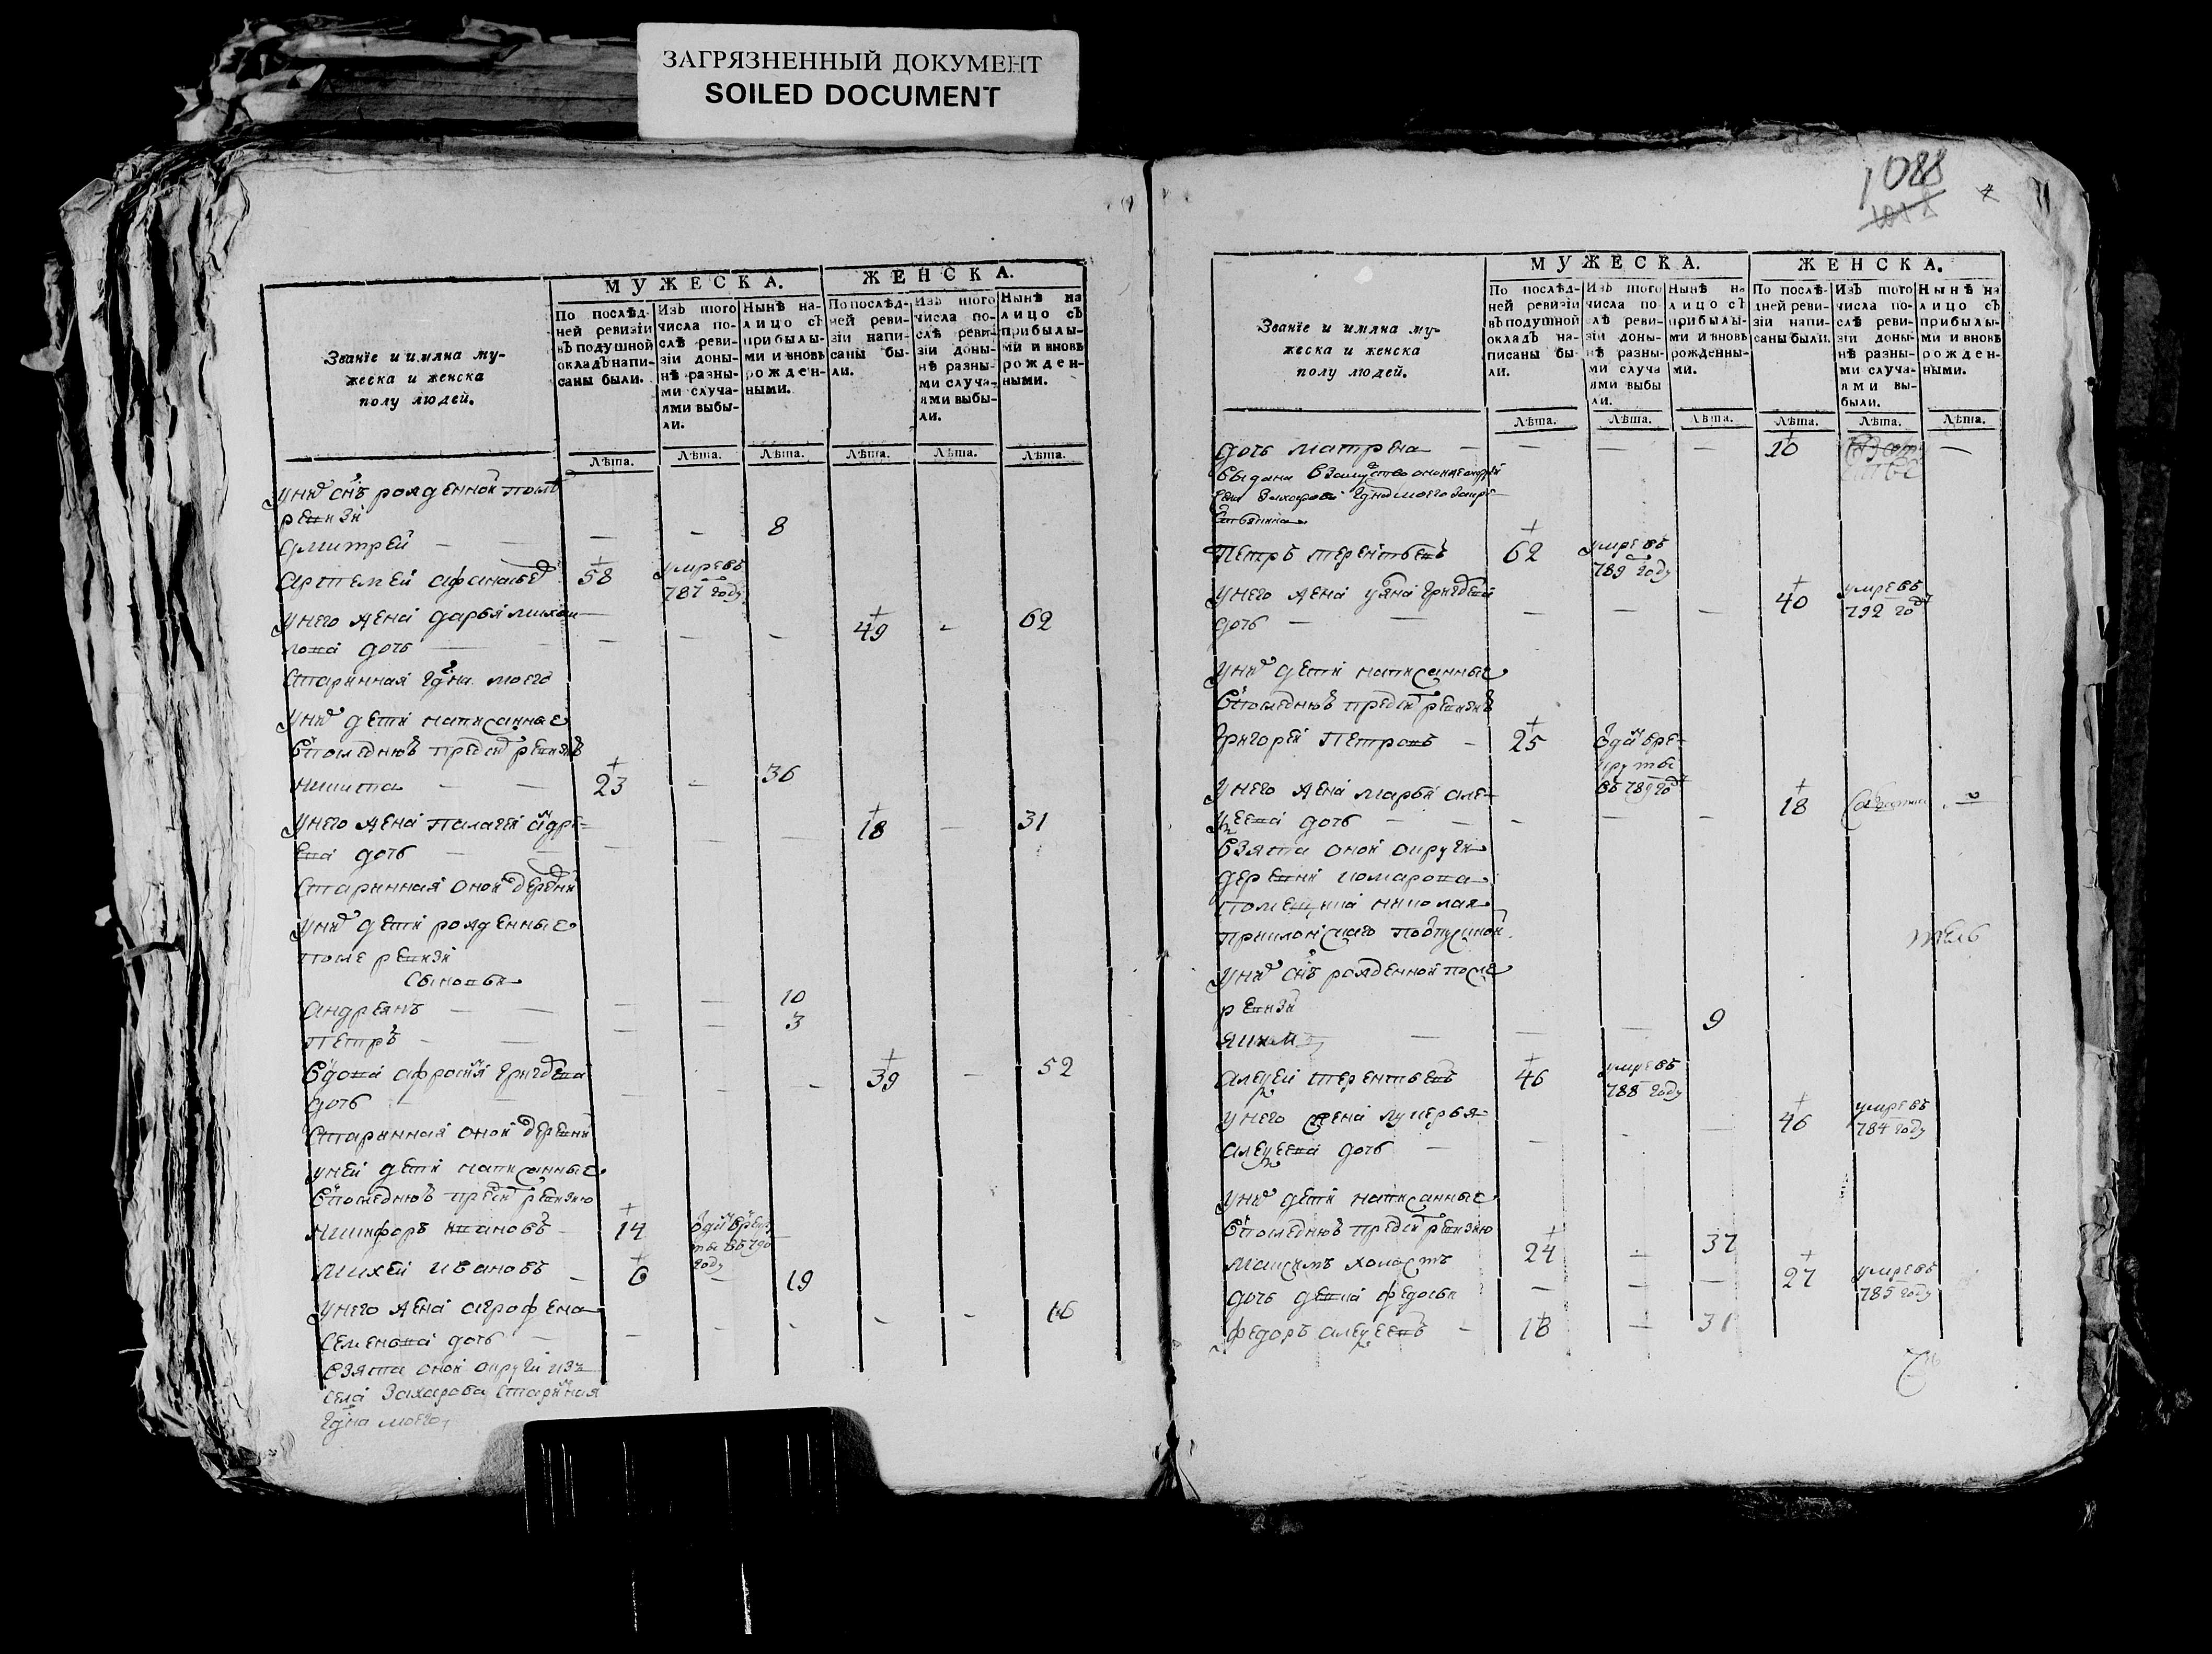 ЗАГРЯЗНЕННЫЙ ДОКУМЕНТ
SOILED DOCUMENT
МУЖЕСКА. ЖЕНСКА.
Званїе и имяна му-
жеска и женска
полу людей.
По послѣд-
ней ревизїи
въ подушной
окладъ напи-
саны были.
Изъ того
числа по-
слѣ реви-
зїи доны-
нѣ разны-
ми случа-
ями выбы-
ли.
Нынѣ на-
лицо съ
прибылы-
ми и вновь
рожден-
ными.
По послѣд-
ней реви-
зїи напи-
саны бы-
ли.
Изъ того
числа по-
слѣ реви-
зїи доны-
нѣ разны-
ми случа-
ями выбы-
ли.
Нынѣ на
лицо съ
прибылы-
ми и вновь
рожден-
ными.
Лѣта. Лѣта. Лѣта. Лѣта. Лѣта. Лѣта.
у них снъ рожденной после
ревизи
дмитрей — — — - 8
Артемей афанасьев 58 умре въ
787 году
у него жена дарья михаи
лова дочь — — - 49 - 62
старинная моего
у них дети написанные
в последнюю пред сим ревизию
никита — — 23 - 36
у него жена палагея андре-
ева дочь — — 18 — 31
старинная оной деревни
у них дети рожденные
после ревизи
сыновья
Андреянъ — — — — 10
петръ - — — — 3
вдова афросиня
дочь — — - 39 — 52
старинная оной деревни
у ней дети написанные
в последнюю пред сим ревизию
никифоръ ивановъ - 14 отдан в рекру
ты въ 790
году
михей ивановъ - 6 - 19
у него жена аграфена
семенова дочь — — - - - - 16
взята оной округи изъ
села Захарова старинная
моего
1088
МУЖЕСКА. ЖЕНСКА.
Званїе и имяна му-
жеска и женска
полу людей.
По послѣд-
ней ревизїи
въ подушной
окладъ на-
писаны бы-
ли.
Изъ того
числа по-
слѣ реви-
зїи доны-
нѣ разны-
ми случа
ями выбы
ли.
Нынѣ на
лицо съ
прибылы-
ми и вновь
рожденны-
ми.
По послѣ-
дней реви-
зїи напи-
саны были.
Изъ того
числа по-
слѣ реви-
зїи доны-
нѣ разны-
ми случа-
ями вы-
были.
Нынѣ на
лицо съ
прибылы-
ми и вновь
рожден-
ными.
Лѣта. Лѣта. Лѣта. Лѣта. Лѣта. Лѣта.
дочь матрена — — — — 10 —
выдана в замужство оной
Захарова моего
петръ терентьевъ 62 умре въ
789 году
у него жена
дочь — — — — — 40 умре въ
792 году
у них дети написанные
в последнюю пред сим ревизию
григорей петровъ - 25 отдан в ре-
круты
въ 789 году
у него жена марья алек-
сеева дочь — — - — - 18
взята оной округи
деревни комарова
помещика николая
у них снъ рожденной после
ревизи
яким — — — 9
алексей терентьевъ 46 умре въ
788 году
у него жена лукерья
алексеева дочь — — - — 46 умре въ
784 году
у них дети написанные
в последнюю пред сим ревизию
максимъ холостъ 24 - 37
дочь девка федосья — — — 27 умре въ
785 году
федоръ алексеевъ - 18 — 31